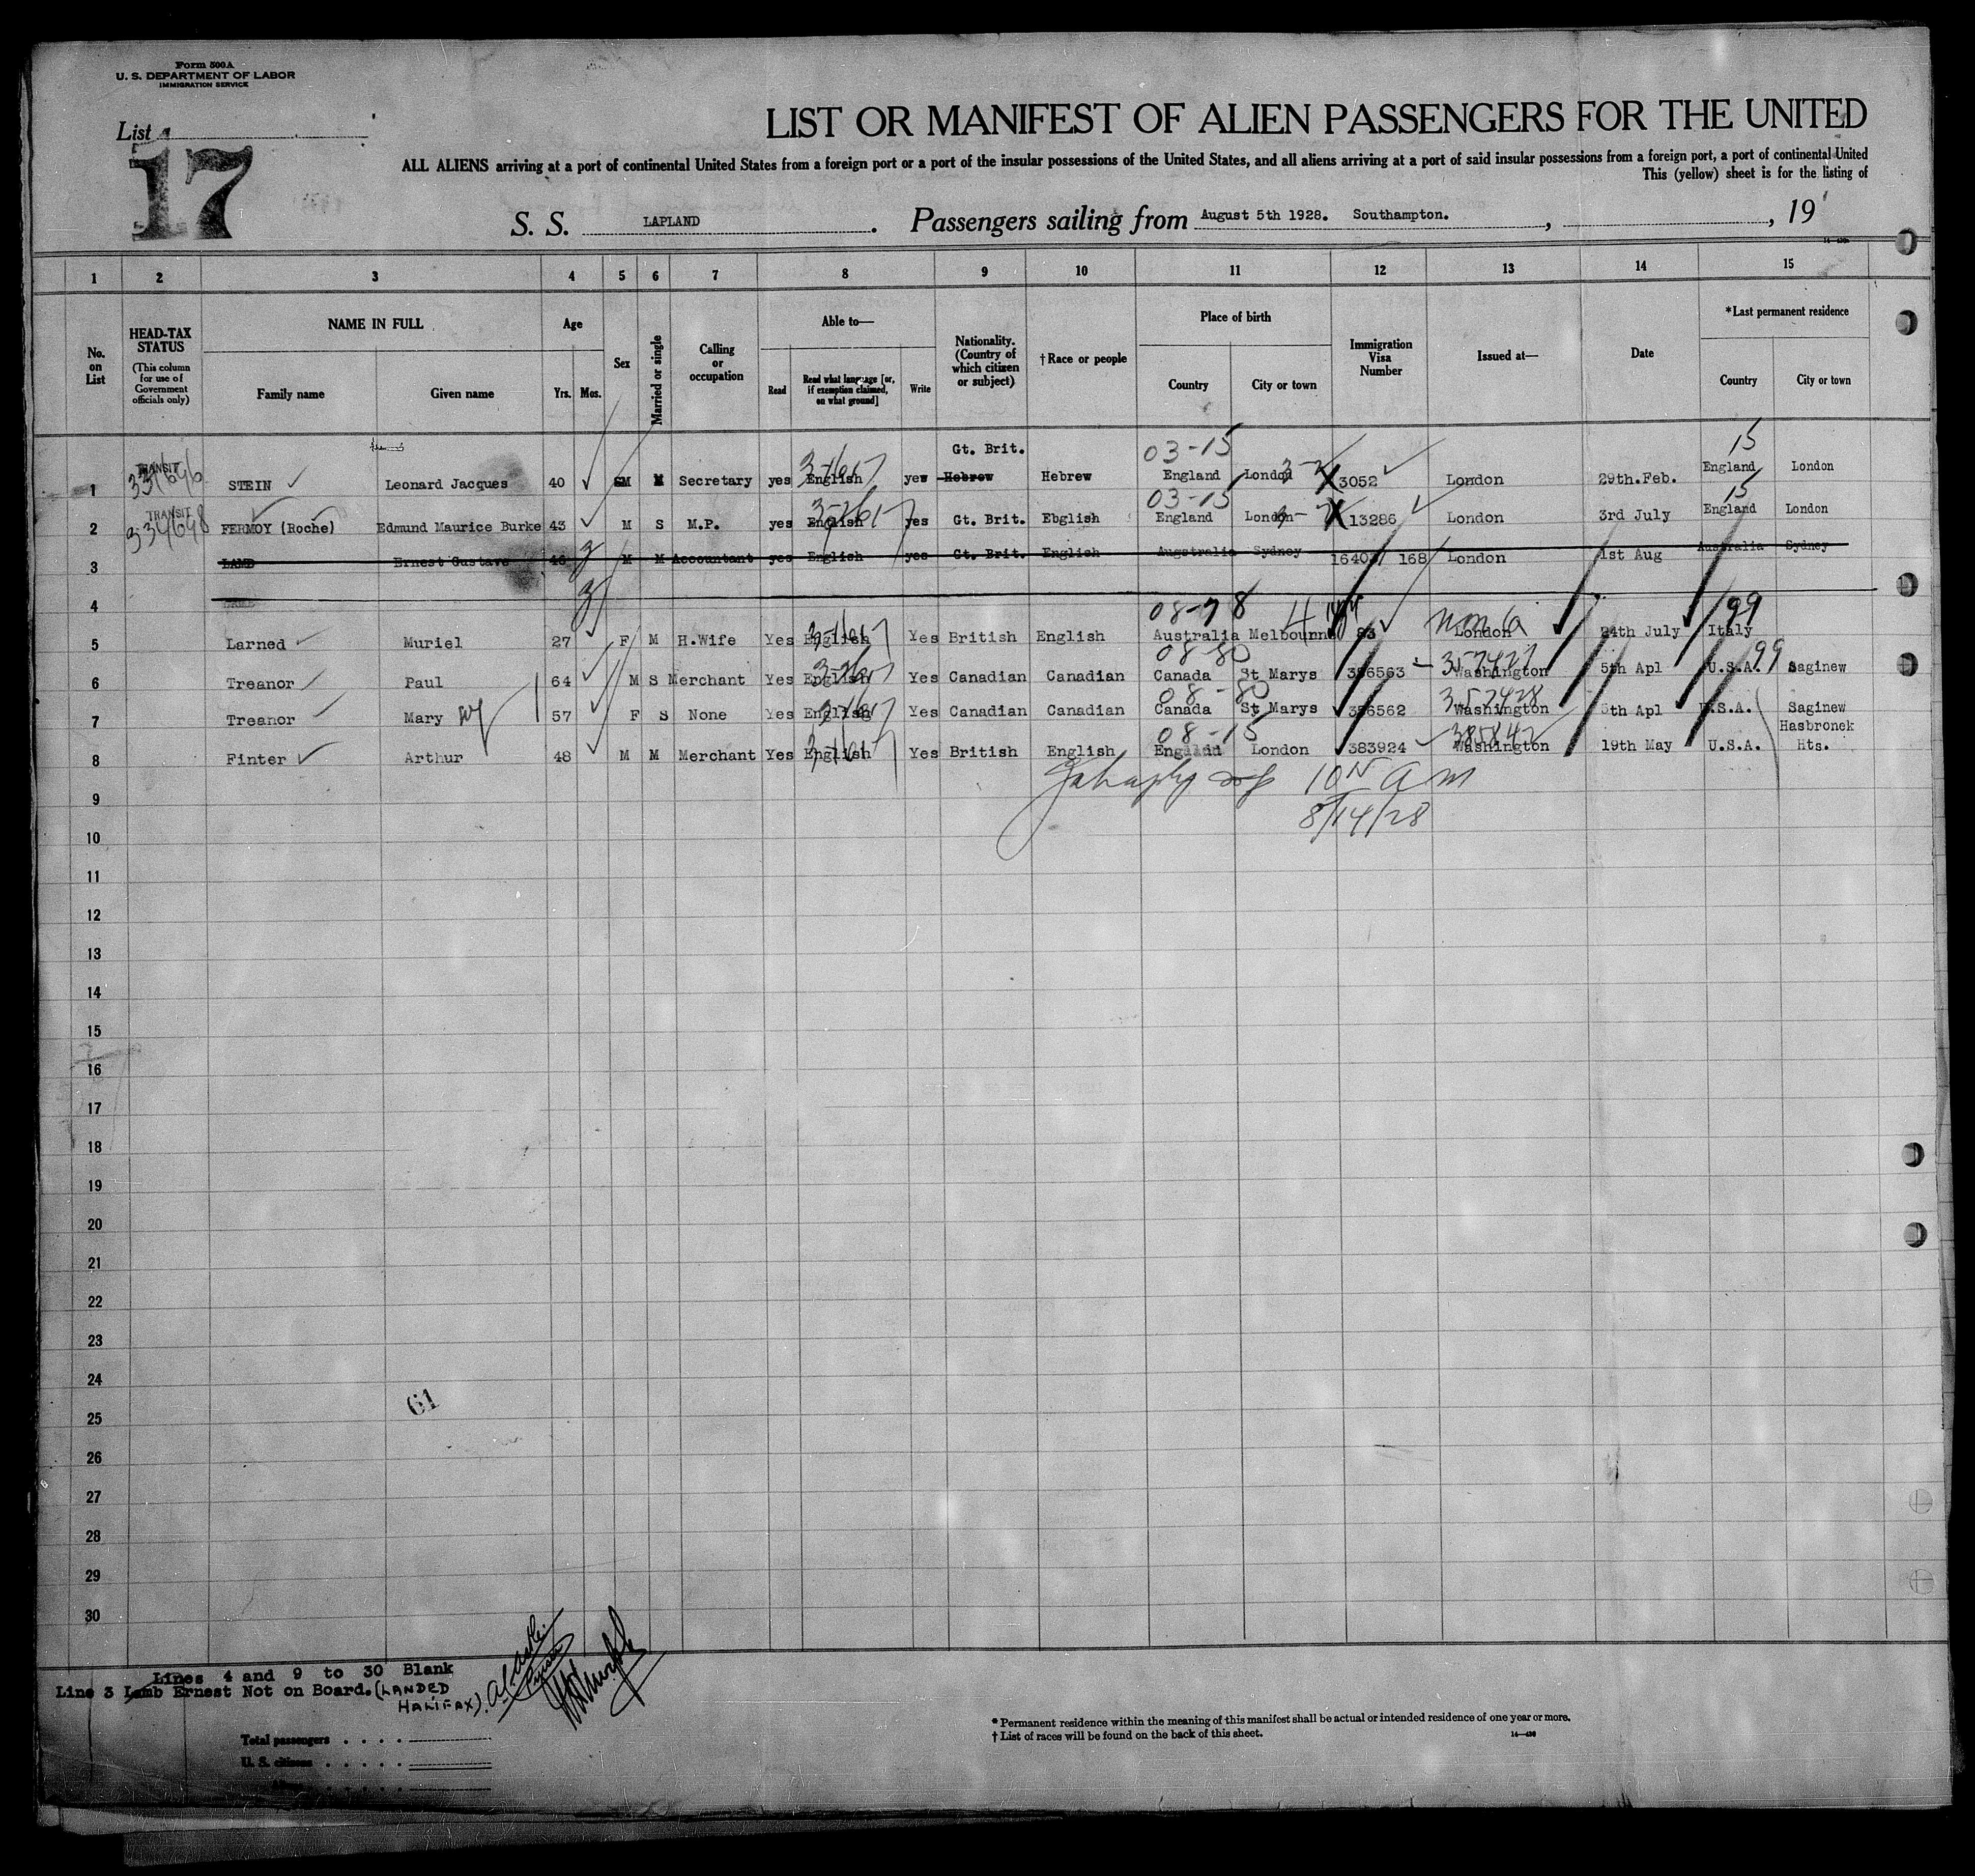 Form 500A
U. S. DEPARTMENT OF LABOR
IMMIGRATION SERVICE
List
17
LIST OR MANIFEST OF ALIEN PASSENGERS FOR THE UNITED
ALL ALIENS arriving at a port of continental United States from a foreign port or a port of the insular possessions of the United States, and all aliens arriving at a port of said insular possessions from a foreign port, a port of continental United
This (yellow) sheet is for the listing of
S. S. LAPLAND. Passengers sailing from August 5th 1928. Southampton. , , 19
1 2 3 4 5 6 7 8 9 10 11 12 13 14 15
No. on List
HEAD-TAX STATUS
(This column for use of Government officials only)
NAME IN FULL
Family name Given name
Age
Yrs. Mos.
Sex
Married or single
Calling or occupation
Able to—
Read Read what language [or, if exemption claimed, on what ground] Write
Nationality. (Country of which citizen or subject)
†Race or people
Place of birth
Country City or town
Immigration Visa Number
Issued at—
Date
*Last permanent residence
Country City or town
Gt. Brit. 03-15 15
1 TRANSIT STEIN Leonard Jacques 40 M M Secretary yes English yes Hebrew Hebrew England London 3052 London 29th.Feb. England London
03-15 15
2 TRANSIT 334698 FERMOY (Roche) Edmund Maurice Burke 43 M S M.P. yes English yes Gt. Brit. Ebglish England London 13286 London 3rd July England London
3 LAMB Ernest Gustave 46 M M Accountant yes English yes Gt. Brit. English Augstralia Sydney 168 London 1st Aug Australia Sydney
4
08-78 99
5 Larned Muriel 27 F M H.Wife Yes English Yes British English Australia Melbourne 83 London 24th July Italy
08-80 357427 99
6 Treanor Paul 64 M S Merchant Yes English Yes Canadian Canadian Canada St Marys 356563 Washington 5th Apl U.S.A. Saginew
08-80 357428
7 Treanor Mary 57 F S None Yes English Yes Canadian Canadian Canada St Marys 356562 Washington 5th Apl U.S.A. Saginew
08-15 385842 Hasbronek
8 Finter Arthur 48 M M Merchant Yes English Yes British English England London 383924 Washington 19th May U.S.A. Hts.
9 10 am
8/14/28
10
11
12
13
14
15
16
17
18
19
20
21
22
23
24
61
25
26
27
28
29
30
Lines 4 and 9 to 30 Blank
Line 3 Lamb Ernest Not on Board. (LANDED
HALIFAX).
Total passengers . . . .
U. S. citizens . . . . .
*Permanent residence within the meaning of this manifest shall be actual or intended residence of one year or more.
†List of races will be found on the back of this sheet.